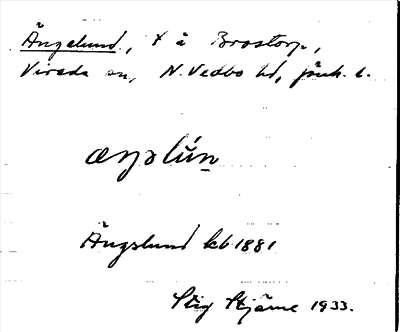 Ängelund, t å Brostorp,
Vireda sn, N. Vedbo hd, jönk. l.
æŋəlún
Ängslund kb 1881
Stig Stjärne 1933.